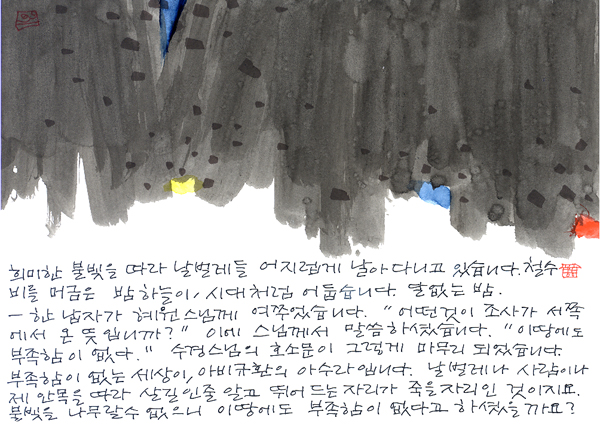 희미한 불빛을 따라 날벌레들 어지럽게 날아다니고 있습니다. 철수
비를 머금은 밤하늘이, 시대처럼 어둡습니다. 달없는 밤.
- 한 남자가 혜원스님께 여쭈었습니다. "어떤것이 조사가 서쪽
에서 온 뜻입니까?" 이에 스님께서 말씀하셨습니다. "이땅에도
부족함이 없다." 수경스님의 호소문이 그렇게 마무리 되었습니다.
부족함이 없는 세상이, 아비규환의 아수라입니다. 날벌레나 사람이나
제 안목을 따라 살길인줄 알고 뛰어드는자리가 죽을자리인 것이지요.
불빛을 나무랄수 없으니 이땅에도 부족함이 없다고 하셨을까요?